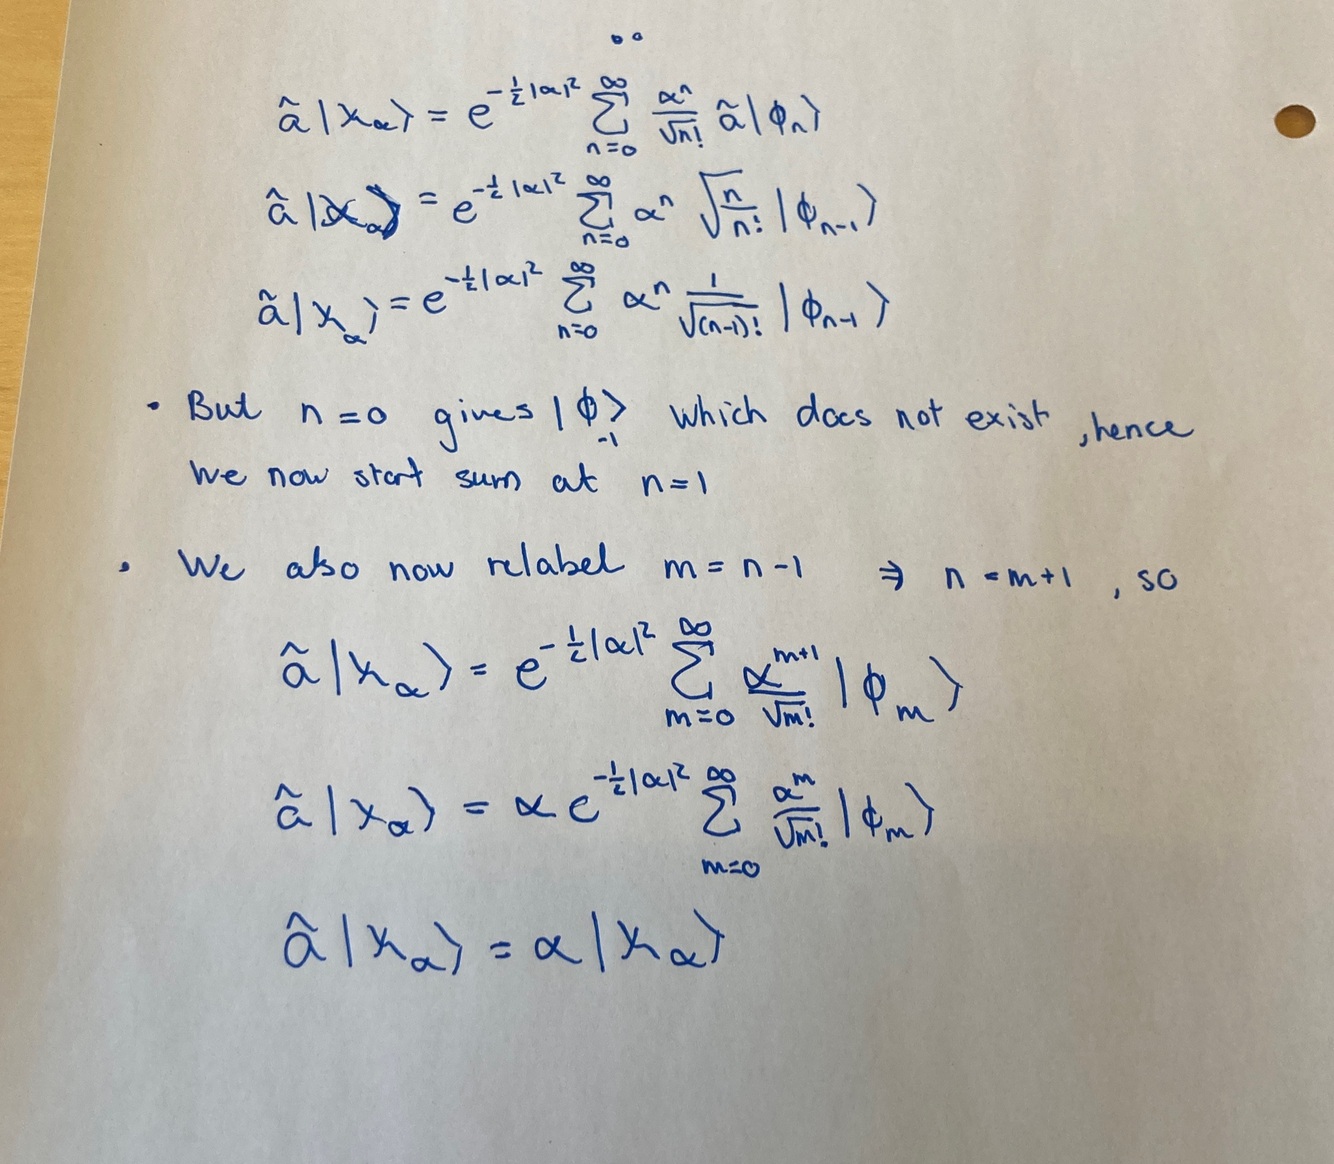 â|χ_α⟩ = e^{-½|α|²} ∑_{n=0}^{∞} αⁿ/√n! â|ϕ_n⟩
â|χ_α⟩ = e^{-½|α|²} ∑_{n=0}^{∞} αⁿ √(n/n!) |ϕ_{n-1}⟩
â|χ_α⟩ = e^{-½|α|²} ∑_{n=0}^{∞} αⁿ 1/√(n-1)! |ϕ_{n-1}⟩
• But n=0 gives |ϕ_{-1}⟩ which does not exist, hence
we now start sum at n=1
• We also now relabel m = n-1 ⇒ n = m+1, so
â|χ_α⟩ = e^{-½|α|²} ∑_{m=0}^{∞} α^{m+1}/√m! |ϕ_m⟩
â|χ_α⟩ = α e^{-½|α|²} ∑_{m=0}^{∞} α^m/√m! |ϕ_m⟩
â|χ_α⟩ = α|χ_α⟩